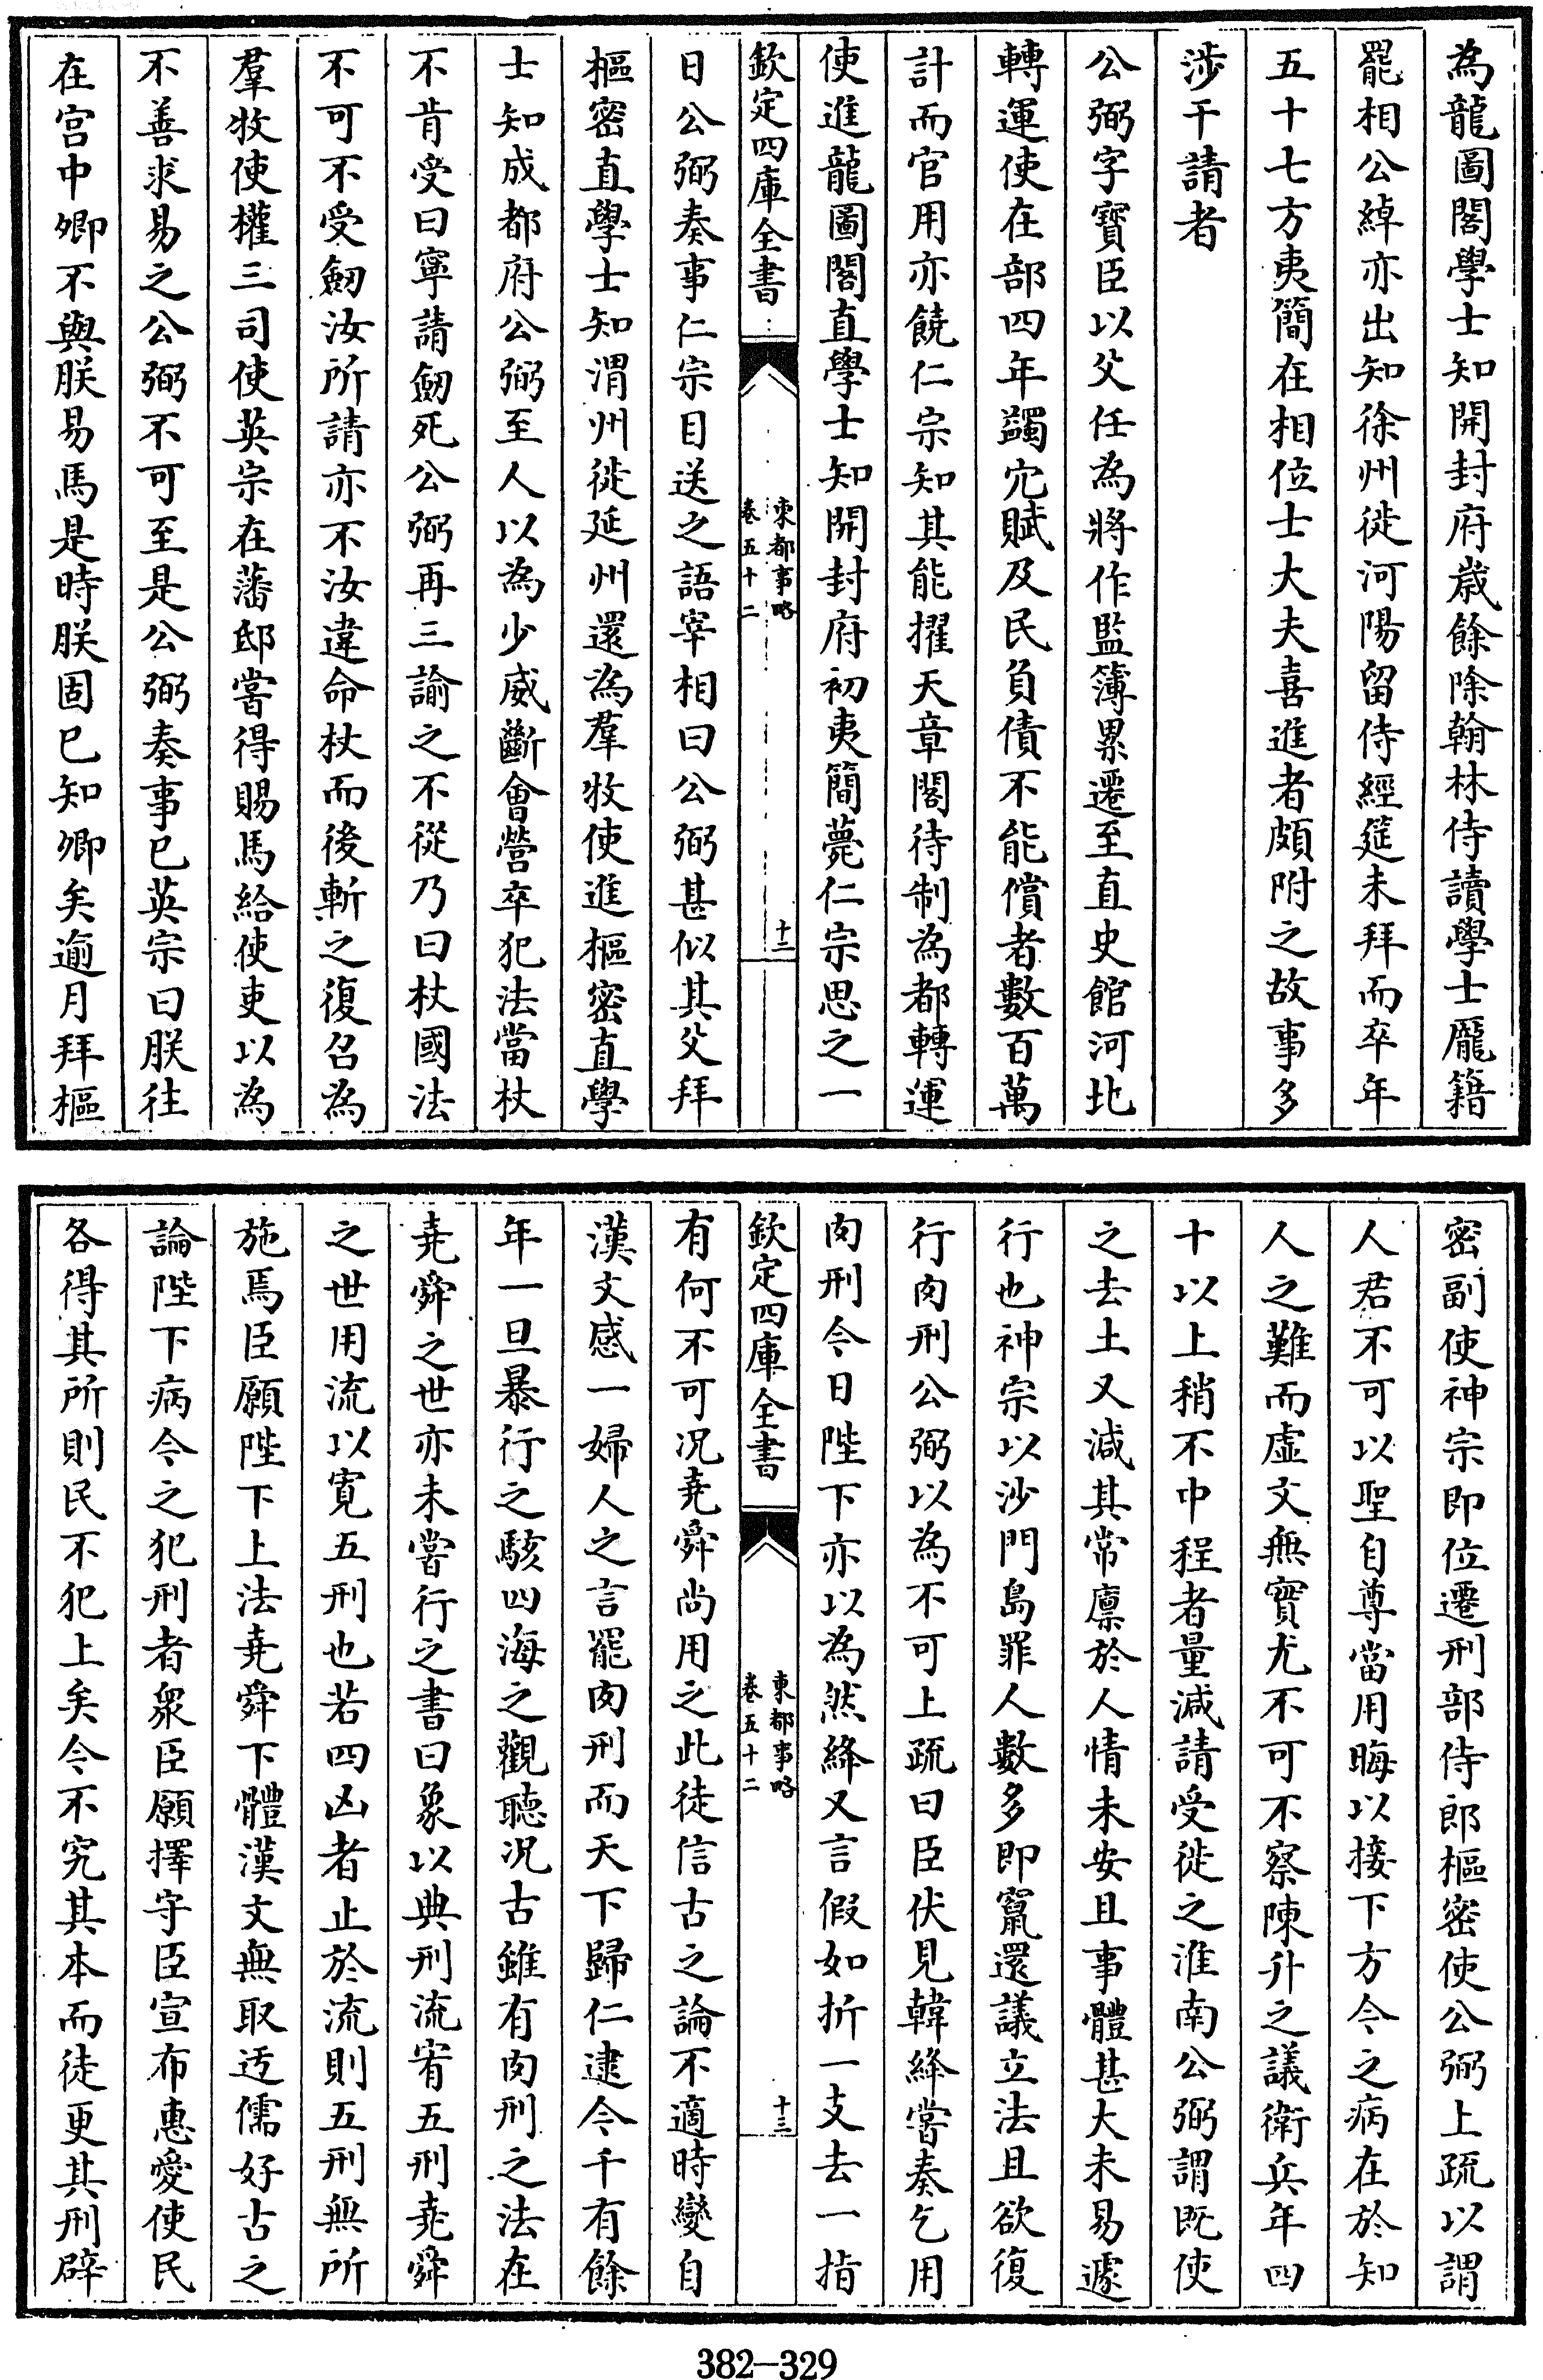 為龍圖閣學士知開封府歳餘除翰林侍讀學士龎籍
罷相公綽亦出知徐州徙河陽留侍經筵未拜而卒年
五十七方夷簡在相位士大夫喜進者頗附之故事多
涉干請者
公弼字寳臣以父任為將作監簿累遷至直史館河北
轉運使在部四年蠲冗賦及民負債不能償者數百萬
計而官用亦饒仁宗知其能擢天章閣待制為都轉運
使進龍圖閣直學士知開封府初夷簡薨仁宗思之一
欽定四庫全書
東都事略
卷五十二
十二
日公弼奏事仁宗目送之語宰相曰公弼甚似其父拜
樞密直學士知渭州徙延州還為羣牧使進樞密直學
士知成都府公弼至人以為少威斷會營卒犯法當杖
不肯受曰寧請劒死公弼再三諭之不從乃曰杖國法
不可不受劒汝所請亦不汝違命杖而後斬之復召為
羣牧使權三司使英宗在藩邸嘗得賜馬給使吏以為
不善求易之公弼不可至是公弼奏事已英宗曰朕往
在宫中卿不與朕易馬是時朕固已知卿矣逾月拜樞
密副使神宗即位遷刑部侍郎樞密使公弼上疏以謂
人君不可以聖自尊當用晦以接下方今之病在於知
人之難而虛文無實尤不可不察陳升之議衛兵年四
十以上稍不中程者量減請受徙之淮南公弼謂既使
之去土又減其常廪於人情未安且事體甚大未易遽
行也神宗以沙門島罪人數多即竄還議立法且欲復
行肉刑公弼以為不可上疏曰臣伏見韓絳嘗奏乞用
肉刑今日陛下亦以為然絳又言假如折一支去一指
欽定四庫全書
東都事略
卷五十二
十三
有何不可况堯舜尚用之此徒信古之論不適時變自
漢文感一婦人之言罷肉刑而天下歸仁逮今千有餘
年一旦暴行之駭四海之觀聽况古雖有肉刑之法在
堯舜之世亦未嘗行之書曰象以典刑流宥五刑堯舜
之世用流以寛五刑也若四凶者止於流則五刑無所
施焉臣願陛下上法堯舜下體漢文無取迃儒好古之
論陛下病今之犯刑者衆臣願擇守臣宣布惠愛使民
各得其所則民不犯上矣今不究其本而徒更其刑辟
382—329